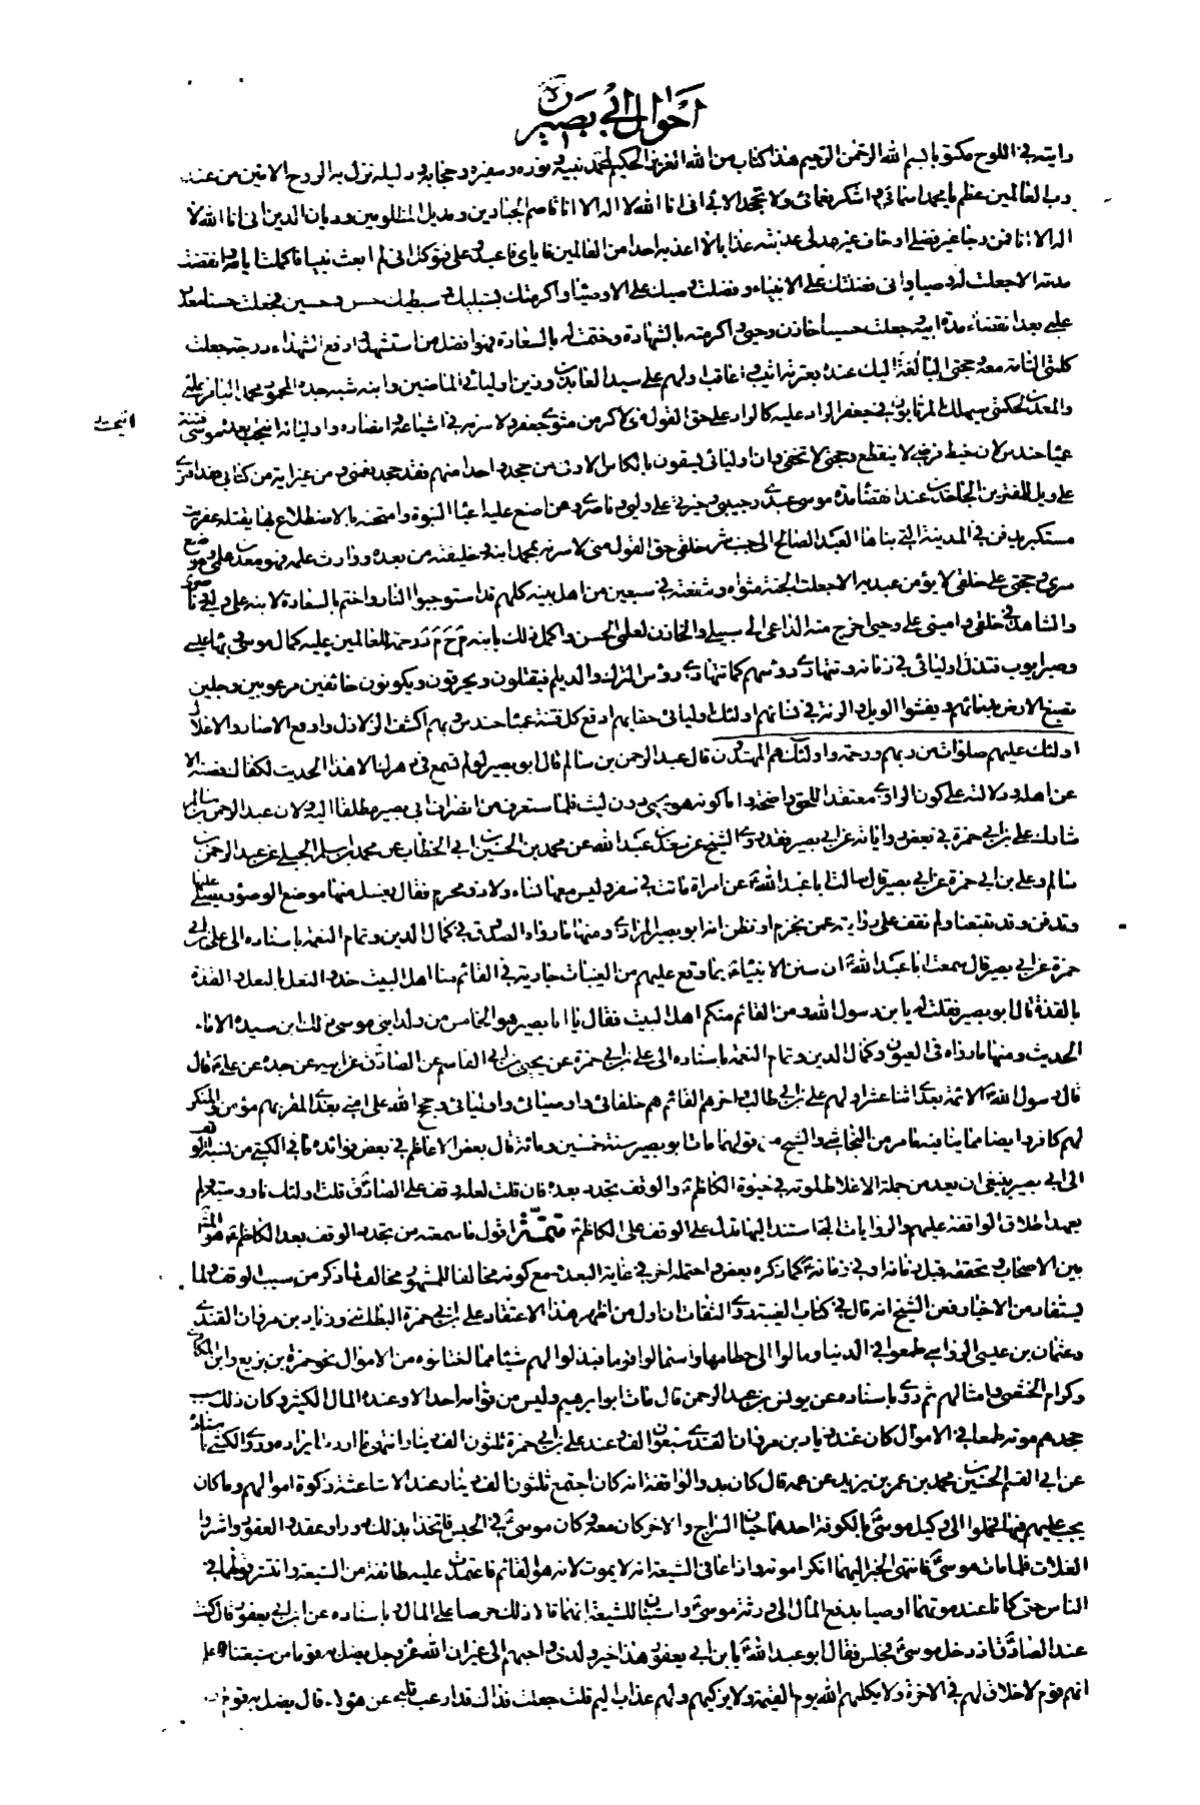 احوال ابي بصير
رايته في اللوح مكتوبا بسم الله الرحمن الرحيم هذا كتاب من الله العزيز الحكيم لمحمد نبيه ونوره وسفيره وحجابه ودليله نزل به الروح الامين من عند
رب العالمين عظم يا محمد اسمائي واشكر نعمائي ولا تجحد الائي اني انا الله لا اله الا انا قاصم الجبارين ومديل المظلومين وديان الدين اني انا الله لا
اله الا انا فمن رجا غير فضلي او خاف غير عدلي عذبته عذابا لا اعذبه احدا من العالمين فاياي فاعبد وعلي فتوكل اني لم ابعث نبيا فاكملت ايامه وانقضت
مدته الا جعلت له وصيا واني فضلتك على الانبياء وفضلت وصيك على الاوصياء واكرمتك بشبليك وسبطيك حسن وحسين فجعلت حسنا معدن
علمي بعد انقضاء مدة ابيه وجعلت حسينا خازن وحيي واكرمته بالشهادة وختمت له بالسعادة فهو افضل من استشهد وارفع الشهداء درجة جعلت
كلمتي التامة معه وحجتي البالغة اليك عنده بعترته اثيب واعاقب اولهم علي سيد العابدين وزين اوليائي الماضين وابنه شبه جده المحمود محمد الباقر علمي
والمعدن لحكمتي سيهلك المرتابون في جعفر الراد عليه كالراد علي حق القول مني لاكرمن مثوى جعفر ولاسرنه في اشياعه وانصاره واوليائه انتجب بعده موسى فتنة
اتيحت
عمياء حندس لان خيط فرضي لا ينقطع وحجتي لا تخفى وان اوليائي يسقون بالكاس الاوفى من جحد واحدا منهم فقد جحد نعمتي ومن غير اية من كتابي فقد افترى
علي ويل للمفترين الجاحدين عند انقضاء مدة موسى عبدي وحبيبي وخيرتي علي وليي وناصري ومن اضع عليه اعباء النبوة وامتحنه بالاضطلاع بها يقتله عفريت
مستكبر يدفن في المدينة التي بناها العبد الصالح الى جنب شر خلقي حق القول مني لاسرنه بمحمد ابنه وخليفته من بعده ووارث علمه فهو معدن علمي وموضع
سري وحجتي على خلقي لا يؤمن عبد به الا جعلت الجنة مثواه وشفعته في سبعين من اهل بيته كلهم قد استوجبوا النار واختم بالسعادة لابنه علي وليي وناصري
والشاهد في خلقي واميني على وحيي اخرج منه الداعي الى سبيلي والخازن لعلمي الحسن واكمل ذلك بابنه م ح م د رحمة للعالمين عليه كمال موسى وبهاء عيسى
وصبر ايوب فتذل اوليائي في زمانه وتتهادى رؤسهم كما تتهادى رؤس الترك والديلم فيقتلون ويحرقون ويكونون خائفين مرعوبين وجلين
تصبغ الارض بدمائهم ويفشو الويل والرنة في نسائهم اولئك اوليائي حقا بهم ادفع كل فتنة عمياء حندس وبهم اكشف الزلازل وادفع الاصار والاغلال
اولئك عليهم صلوات من ربهم ورحمة واولئك هم المهتدون قال عبد الرحمن بن سالم قال ابو بصير لو لم تسمع في دهرك الا هذا الحديث لكفاك فصنه الا
عن اهله ودلالته على كون الراوي معتقدا للحق واضحة واما كونه هو يحيى دون ليث فلما ستعرف من انصراف ابي بصير مطلقا اليه ولان عبد الرحمن بن سالم
شارك علي بن ابي حمزة في بعض رواياته عن ابي بصير فقد روى الشيخ عن سعد بن عبد الله عن محمد بن الحسين بن ابي الخطاب عن محمد بن اسلم الجبلي عن عبد الرحمن بن
سالم وعلي بن ابي حمزة عن ابي بصير قال سالت ابا عبد الله عن امراة ماتت في سفر وليس معها نساء ولا ذو محرم فقال يغسل منها موضع الوضوء ويصلى عليها
وتدفن وقد تتبعنا ولم نقف على رواية عمن يجزم او نظن انه ابو بصير المرادي ومنها ما رواه الصدوق في كمال الدين وتمام النعمة باسناده الى علي بن ابي
حمزة عن ابي بصير قال سمعت ابا عبد الله ان سنن الانبياء بما وقع عليهم من الغيبات جارية في القائم منا اهل البيت حذو النعل بالنعل والقذة
بالقذة قال ابو بصير فقلت له يا بن رسول الله ومن القائم منكم اهل البيت فقال يا ابا بصير هو الخامس من ولد ابني موسى ذلك ابن سيدة الاماء
الحديث ومنها ما رواه في العيون وكمال الدين وتمام النعمة باسناده الى علي بن ابي حمزة عن يحيى بن ابي القاسم عن الصادق عن ابيه عن جده عن علي قال
قال رسول الله الائمة بعدي اثنا عشر اولهم علي بن ابي طالب واخرهم القائم هم خلفائي واوصيائي واوليائي وحجج الله على امتي بعدي المقر بهم مؤمن والمنكر
لهم كافر وايضا مما ينافيه ما مر من النجاشي والشيخ من قولهما مات ابو بصير سنة خمسين ومائة قال بعض الاعاظم في بعض فوائده ما في الكشي من نسبة الوقف
الى ابي بصير ينبغي ان يعد من جملة الاغلاط لموته في حيوة الكاظم والوقف تجدد بعده فان قلت لعله وقف على الصادق قلت اولئك ناووسية ولم
يعهد اطلاق الواقفة عليهم والروايات التي استند اليها تدل على الوقف على الكاظم تتمة اقول ما سمعته من تجدد الوقف بعد الكاظم هو المشهور
بين الاصحاب وتحققه قبل زمانه او في زمانه كما ذكره بعض واحتمله اخر في غاية البعد مع كونه مخالفا للمشهور مخالف لما ذكر من سبب الوقف ولما
يستفاد من الاخبار فعن الشيخ انه قال في كتاب الغيبة روى الثقات ان اول من اظهر هذا الاعتقاد علي بن ابي حمزة البطائني وزياد بن مروان القندي
وعثمان بن عيسى الرواسي طمعوا في الدنيا ومالوا الى حطامها واستمالوا قوما فبذلوا لهم شيئا مما اختانوه من الاموال نحو حمزة بن بزيع وابن المكاري
وكرام الخثعمي وامثالهم ثم روى باسناده عن يونس بن عبد الرحمن قال مات ابو ابرهيم وليس من قوامه احد الا وعنده المال الكثير وكان ذلك سبب
جحدهم موته طمعا في الاموال كان عند زياد بن مروان القندي سبعون الف وعند علي بن ابي حمزة ثلثون الف دينار انتهى وروى الكشي باسناده
عن ابي القسم الحسين بن محمد بن عمر بن يزيد عن عمه قال كان بدو الواقفة انه كان اجتمع ثلثون الف دينار عند الاشاعثة زكوة اموالهم وما كان
يجب عليهم فيها فحملوا الى وكيل موسى بالكوفة احدهما حيان السراج والاخر كان معه وكان موسى في الحبس فاتخذا بذلك دورا وعقدوا العقود واشتروا
الغلات فلما مات موسى فانتهى الخبر اليهما انكرا موته واذاعا في الشيعة انه لا يموت لانه هو القائم فاعتمدت عليه طائفة من الشيعة وانتشر قولهما في
الناس حتى كانا عند موتهما اوصيا بدفع المال الى ورثة موسى واستبان للشيعة انهما قالا ذلك حرصا على المال وباسناده عن ابن ابي يعفور قال كنت
عند الصادق اذ دخل موسى فجلس فقال ابو عبد الله يا بن ابي يعفور هذا خير ولدي واحبهم الي غير ان الله عز وجل يضل به قوما من شيعتنا فاعلم
انهم قوم لا خلاق لهم في الاخرة ولا يكلمهم الله يوم القيمة ولا يزكيهم ولهم عذاب اليم قلت جعلت فداك قد ارعب قلبي عن هؤلاء قال يضل به قوم